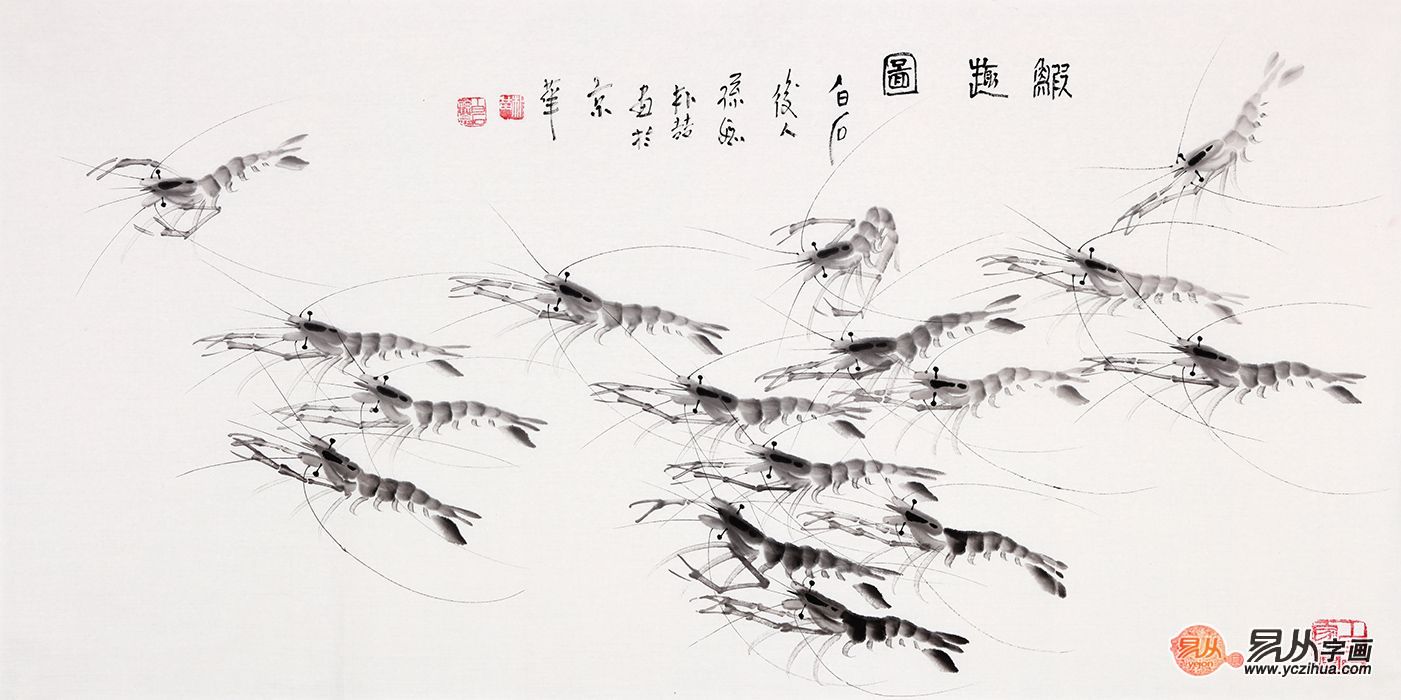 鰕趣圖
白石
後人
孫媳
畫於
京
華
易从
易从字画
www.yczihua.com